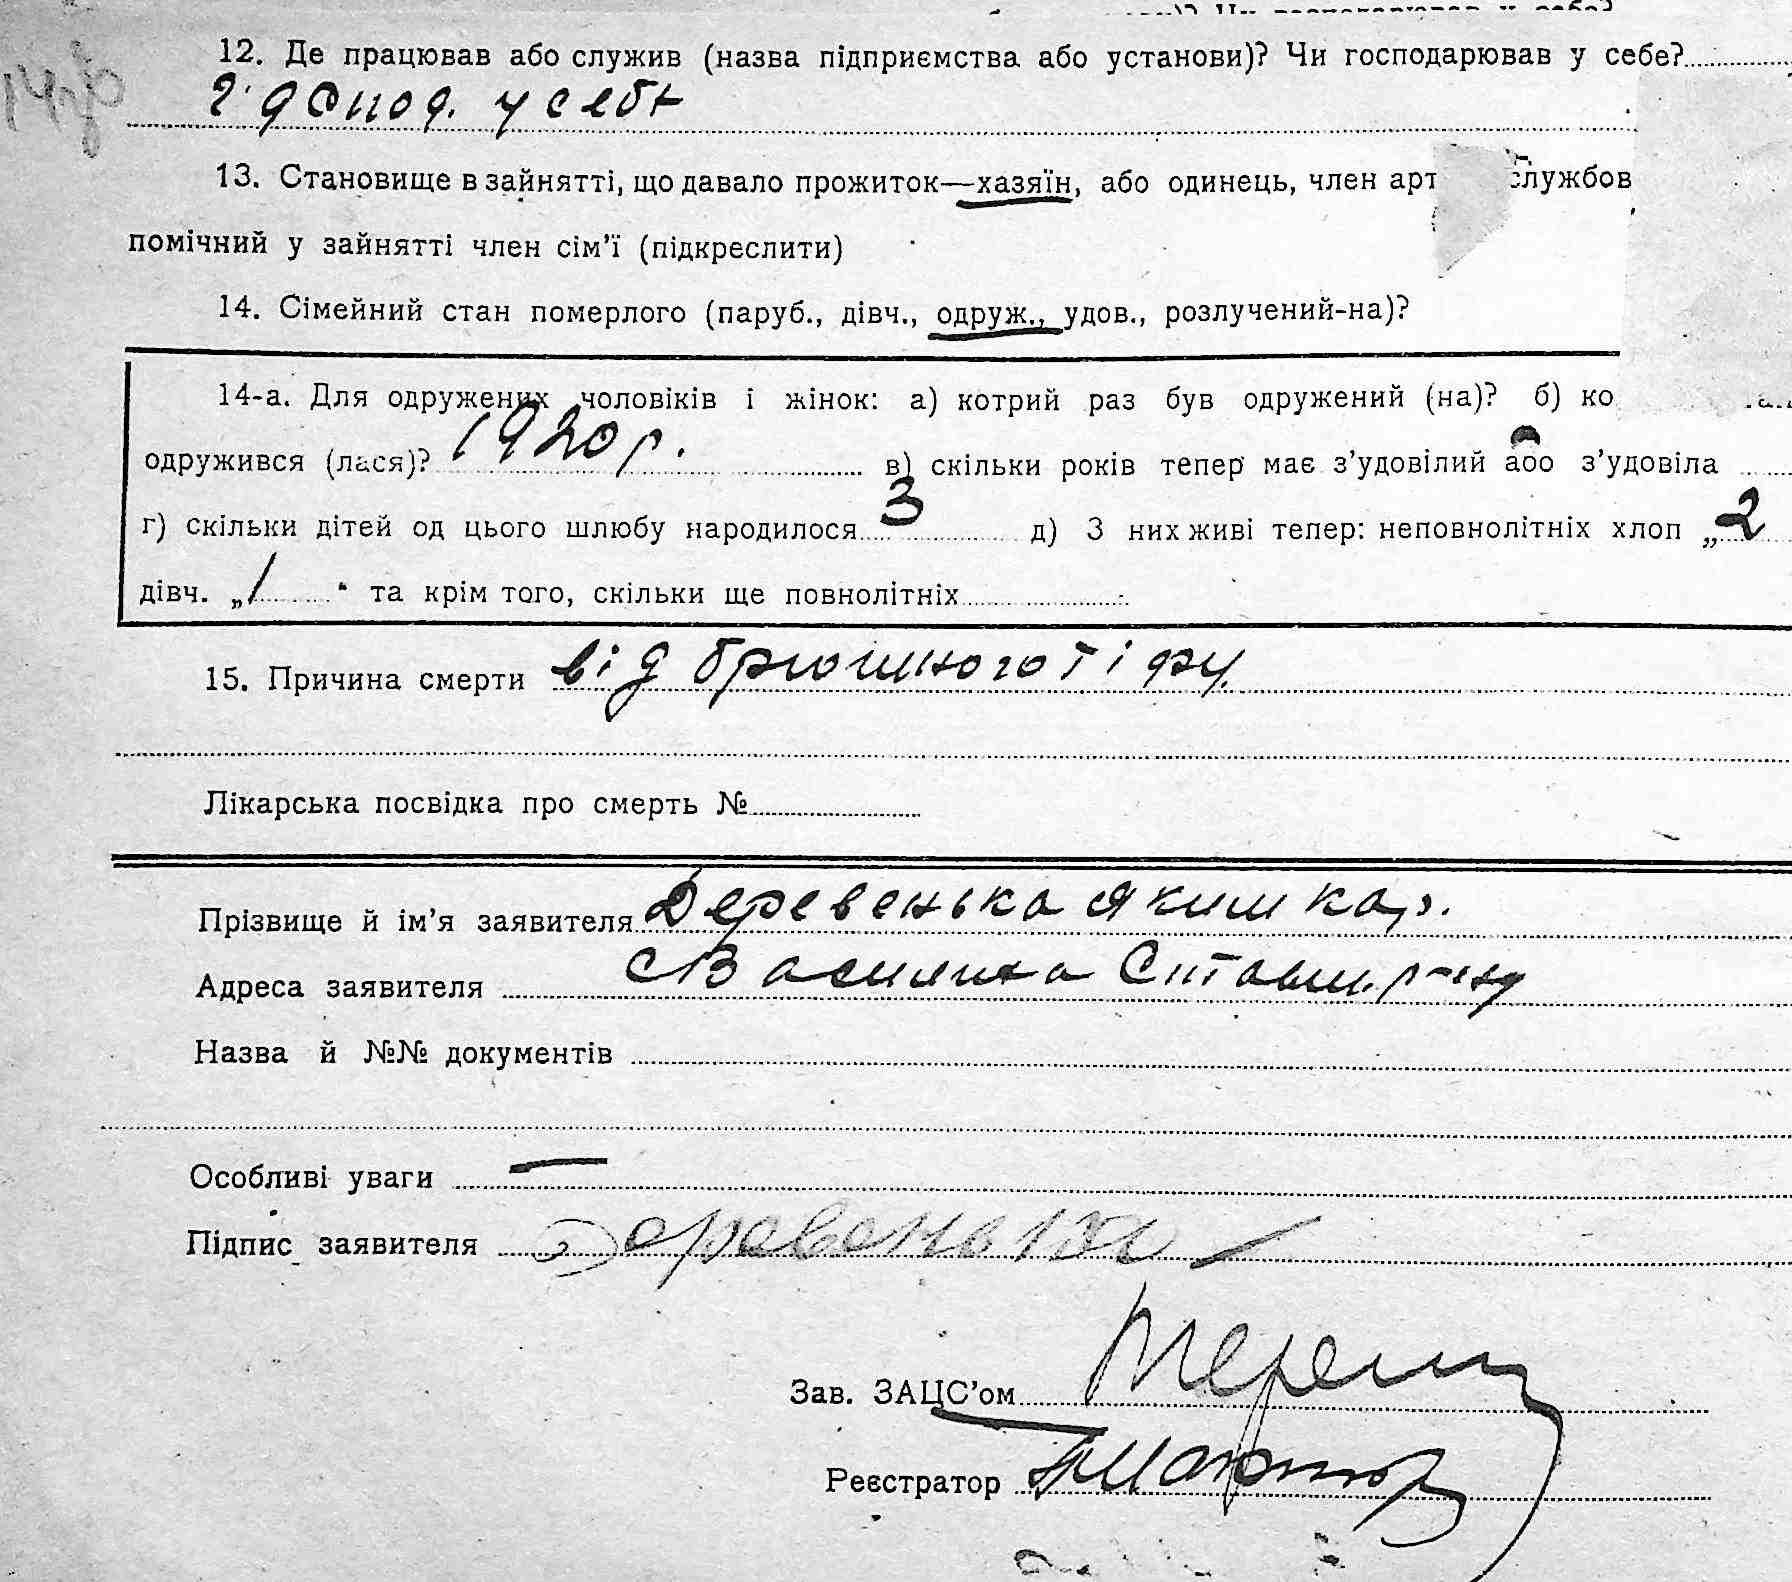 12. Де працював або служив (назва підприємства або установи)? Чи господарював у себе?
у себе
13. Становище в зайнятті, що давало прожиток—хазяїн, або одинець, член арт службов
помічний у зайнятті член сім'ї (підкреслити)
14. Сімейний стан померлого (паруб., дівч., одруж., удов., розлучений-на)?
14-а. Для одружених чоловіків і жінок: а) котрий раз був одружений (на)? б) ко
одружився (лася)? 1920 р. в) скільки років тепер має з'удовілий або з'удовіла
г) скільки дітей од цього шлюбу народилося 3 д) З них живі тепер: неповнолітніх хлоп „2
дівч. „1 " та крім того, скільки ще повнолітніх
15. Причина смерти від брюшного тіфу.
Лікарська посвідка про смерть №
Прізвище й ім'я заявителя Деревенька Яким
Адреса заявителя
Назва й №№ документів
Особливі уваги —
Підпис заявителя Деревенька
Зав. ЗАЦС'ом
Реєстратор